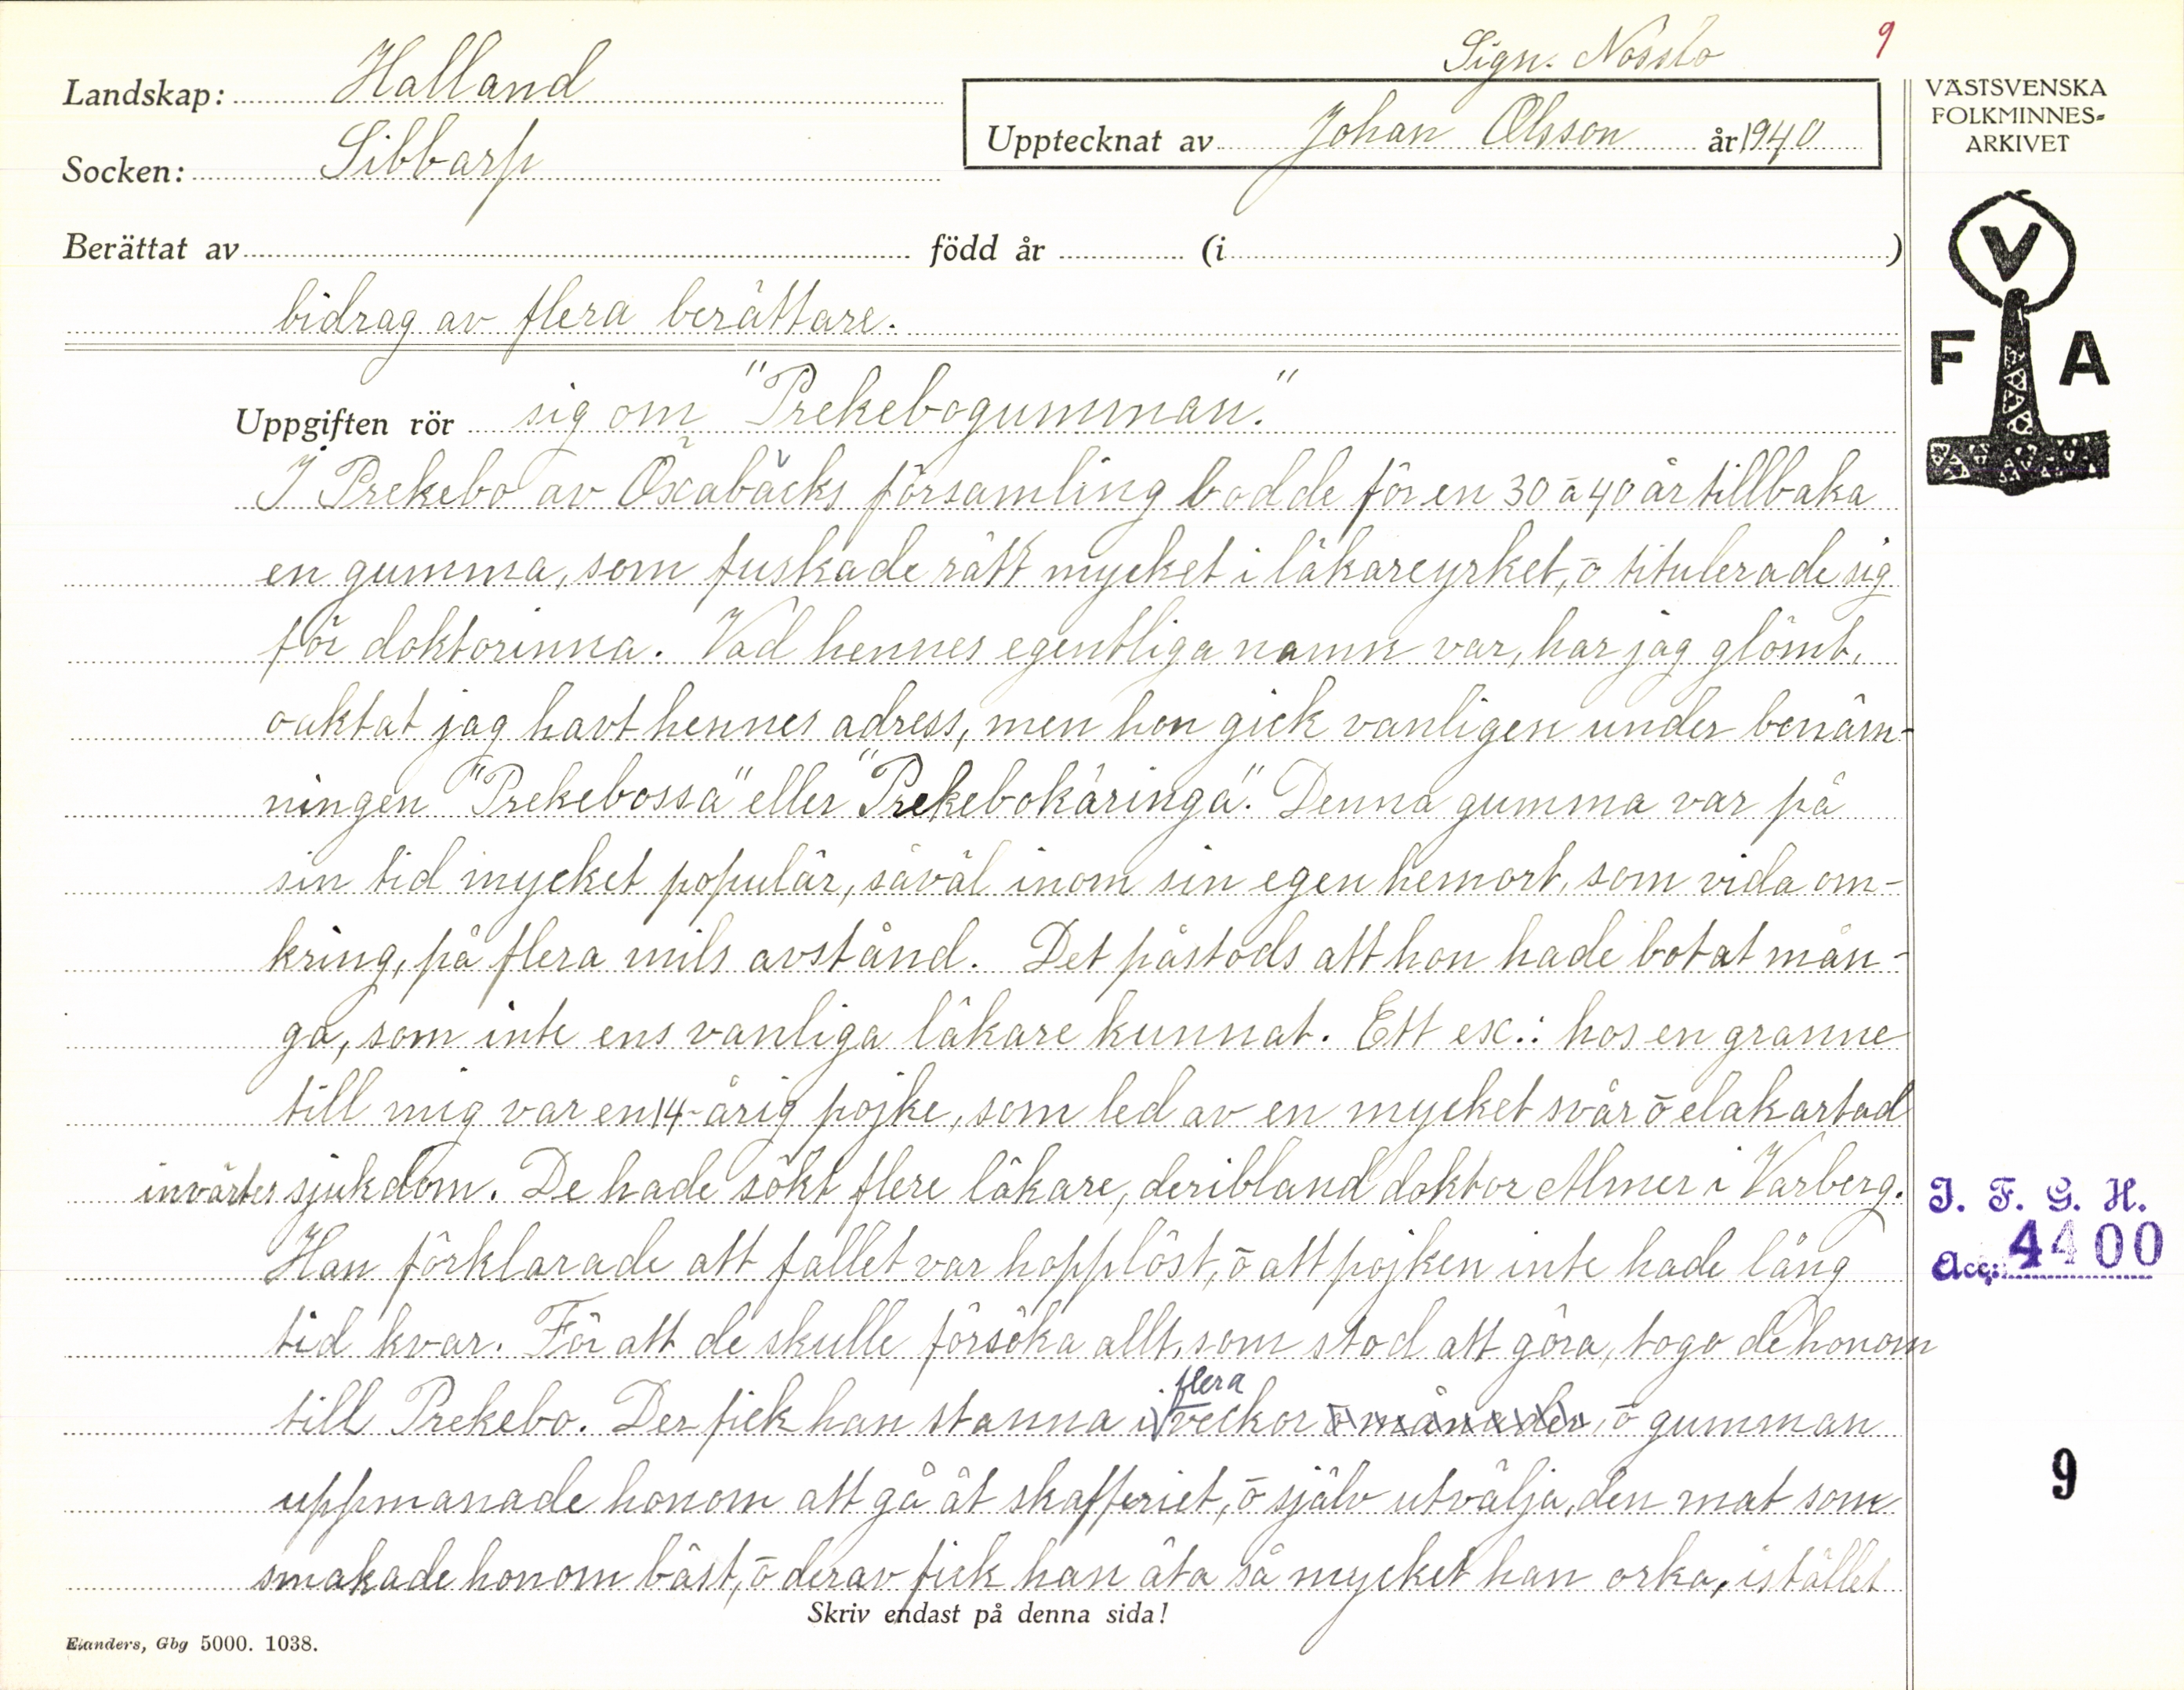 Sign. Nosslo 9
Landskap: Halland
Upptecknat av Johan Olsson år 1940
Socken: Sibbarp
VÄSTSVENSKA
FOLKMINNES-
ARKIVET
V
F A
Berättat av född år (i )
bidrag av flera berättare.
Uppgiften rör sig om "Prekebogumman."
I Prekebo av Öxabäcks församling bodde för en 30 à 40 år tillbaka
en gumma, som fuskade rätt mycket i läkareyrket, o titulerade sig
för doktorinna. Vad hennes egentliga namn var, har jag glömt,
oaktat jag havt hennes adress, men hon gick vanligen under benäm-
ningen "Prekebossa" eller "Prekebokäringa". Denna gumma var på
sin tid mycket populär, såväl inom sin egen hemort, som vida om-
kring, på flera mils avstånd. Det påstods att hon hade botat mån-
ga, som inte ens vanliga läkare kunnat. Ett ex.: hos en granne
till mig var en 14-årig pojke, som led av en mycket svår o elakartad
invärtes sjukdom. De hade sökt flere läkare, deribland doktor Almer i Varberg.
Han förklarade att fallet var hopplöst, o att pojken inte hade lång
tid kvar. För att de skulle försöka allt, som stod att göra, togo de honom
till Prekebo. Der fick han stanna i flera veckor o månader, o gumman
uppmanade honom att gå åt skafferiet, o själv utvälja, den mat som
smakade honom bäst, o derav fick han äta så mycket han orka, istället
Skriv endast på denna sida!
Elanders, Gbg 5000. 1038.
I. F. G. H.
Acc: 4400
9